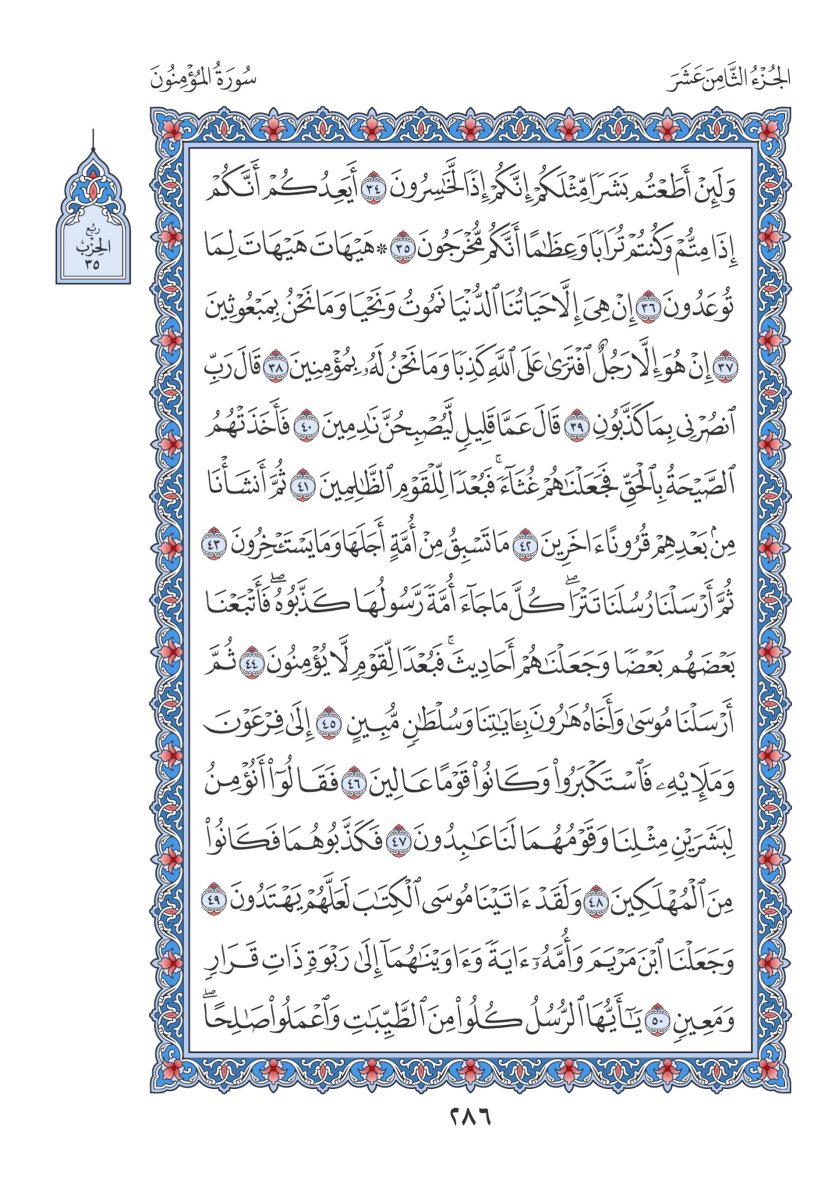 الجُزْءُ الثَّامِنَ عَشَرَ
سُورَةُ المُؤْمِنُونَ
رُبُع
الحِزْب
٣٥
وَلَئِنْ أَطَعْتُم بَشَرًا مِّثْلَكُمْ إِنَّكُمْ إِذًا لَّخَاسِرُونَ ٣٤ أَيَعِدُكُمْ أَنَّكُمْ
إِذَا مِتُّمْ وَكُنتُمْ تُرَابًا وَعِظَٰمًا أَنَّكُم مُّخْرَجُونَ ٣٥ * هَيْهَاتَ هَيْهَاتَ لِمَا
تُوعَدُونَ ٣٦ إِنْ هِيَ إِلَّا حَيَاتُنَا ٱلدُّنْيَا نَمُوتُ وَنَحْيَا وَمَا نَحْنُ بِمَبْعُوثِينَ
٣٧ إِنْ هُوَ إِلَّا رَجُلٌ ٱفْتَرَىٰ عَلَى ٱللَّهِ كَذِبًا وَمَا نَحْنُ لَهُۥ بِمُؤْمِنِينَ ٣٨ قَالَ رَبِّ
ٱنصُرْنِي بِمَا كَذَّبُونِ ٣٩ قَالَ عَمَّا قَلِيلٍ لَّيُصْبِحُنَّ نَٰدِمِينَ ٤٠ فَأَخَذَتْهُمُ
ٱلصَّيْحَةُ بِٱلْحَقِّ فَجَعَلْنَٰهُمْ غُثَآءً ۚ فَبُعْدًا لِّلْقَوْمِ ٱلظَّٰلِمِينَ ٤١ ثُمَّ أَنشَأْنَا
مِنۢ بَعْدِهِمْ قُرُونًا ءَاخَرِينَ ٤٢ مَا تَسْبِقُ مِنْ أُمَّةٍ أَجَلَهَا وَمَا يَسْتَـْٔخِرُونَ ٤٣
ثُمَّ أَرْسَلْنَا رُسُلَنَا تَتْرَا ۖ كُلَّ مَا جَآءَ أُمَّةً رَّسُولُهَا كَذَّبُوهُ ۖ فَأَتْبَعْنَا
بَعْضَهُم بَعْضًا وَجَعَلْنَٰهُمْ أَحَادِيثَ ۚ فَبُعْدًا لِّقَوْمٍ لَّا يُؤْمِنُونَ ٤٤ ثُمَّ
أَرْسَلْنَا مُوسَىٰ وَأَخَاهُ هَٰرُونَ بِـَٔايَٰتِنَا وَسُلْطَٰنٍ مُّبِينٍ ٤٥ إِلَىٰ فِرْعَوْنَ
وَمَلَإِيْهِۦ فَٱسْتَكْبَرُوا۟ وَكَانُوا۟ قَوْمًا عَالِينَ ٤٦ فَقَالُوٓا۟ أَنُؤْمِنُ
لِبَشَرَيْنِ مِثْلِنَا وَقَوْمُهُمَا لَنَا عَٰبِدُونَ ٤٧ فَكَذَّبُوهُمَا فَكَانُوا۟
مِنَ ٱلْمُهْلَكِينَ ٤٨ وَلَقَدْ ءَاتَيْنَا مُوسَى ٱلْكِتَٰبَ لَعَلَّهُمْ يَهْتَدُونَ ٤٩
وَجَعَلْنَا ٱبْنَ مَرْيَمَ وَأُمَّهُۥٓ ءَايَةً وَءَاوَيْنَٰهُمَآ إِلَىٰ رَبْوَةٍ ذَاتِ قَرَارٍ
وَمَعِينٍ ٥٠ يَٰٓأَيُّهَا ٱلرُّسُلُ كُلُوا۟ مِنَ ٱلطَّيِّبَٰتِ وَٱعْمَلُوا۟ صَٰلِحًا ۖ
٢٨٦